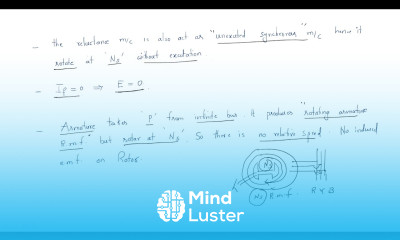 - the reluctance m/c is also act as "unexcited synchronous" m/c hence it
rotate at 'Ns' without excitation
- If=0 ⇒ E=0.
- Armature takes 'P' from infinite bus. It produces "rotating armature
R.m.f" but rotor at 'Ns'. So there is no relative speed No induced
e.m.f on Rotor.
Ns
Ns R.m.f
R Y B
Mind
Luster